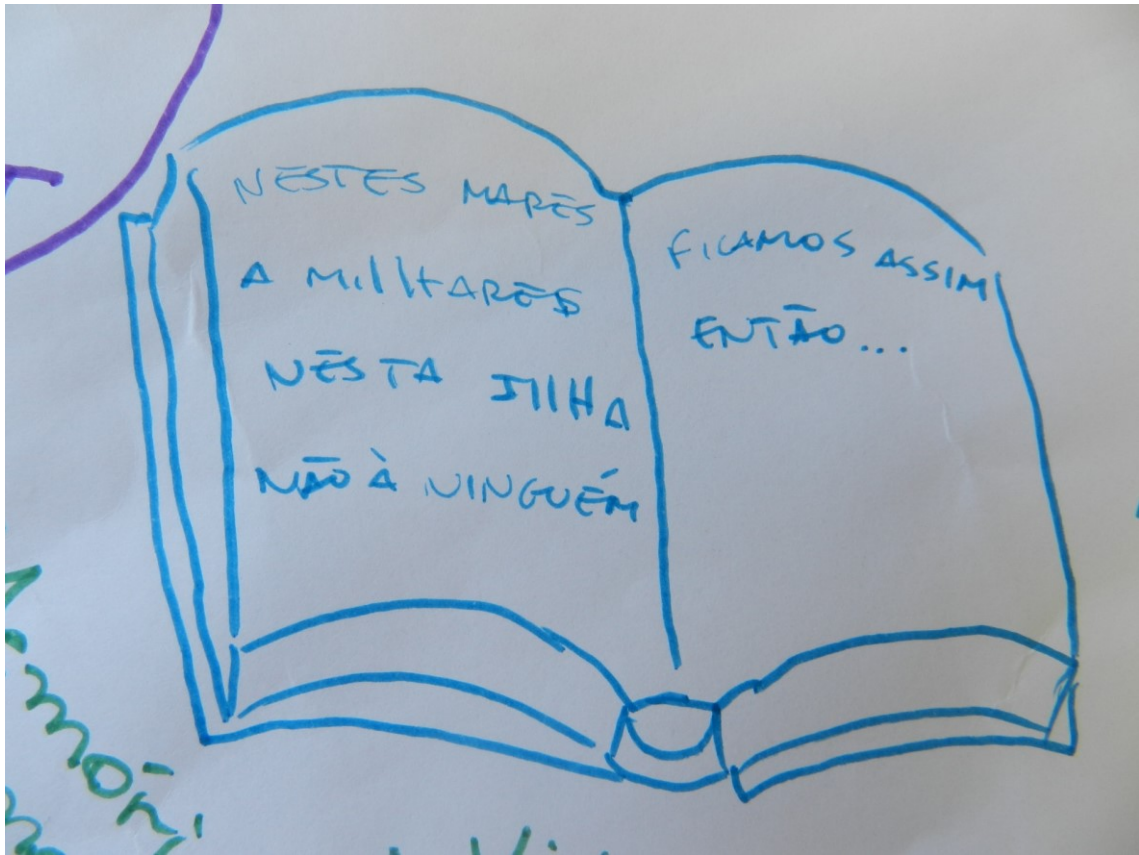 NESTES MARES
A MIlHARES
NESTA IlHA
NÃO À NINGUÉM
FICAMOS ASSIM
ENTÃO...